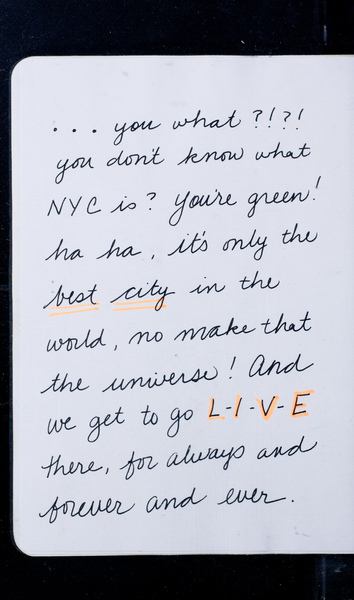 ... you what ?!?!
you don't know what
NYC is? You're green!
ha ha, it's only the
best city in the
world, no make that
the universe! And
we get to go L-I-V-E
there, for always and
forever and ever.